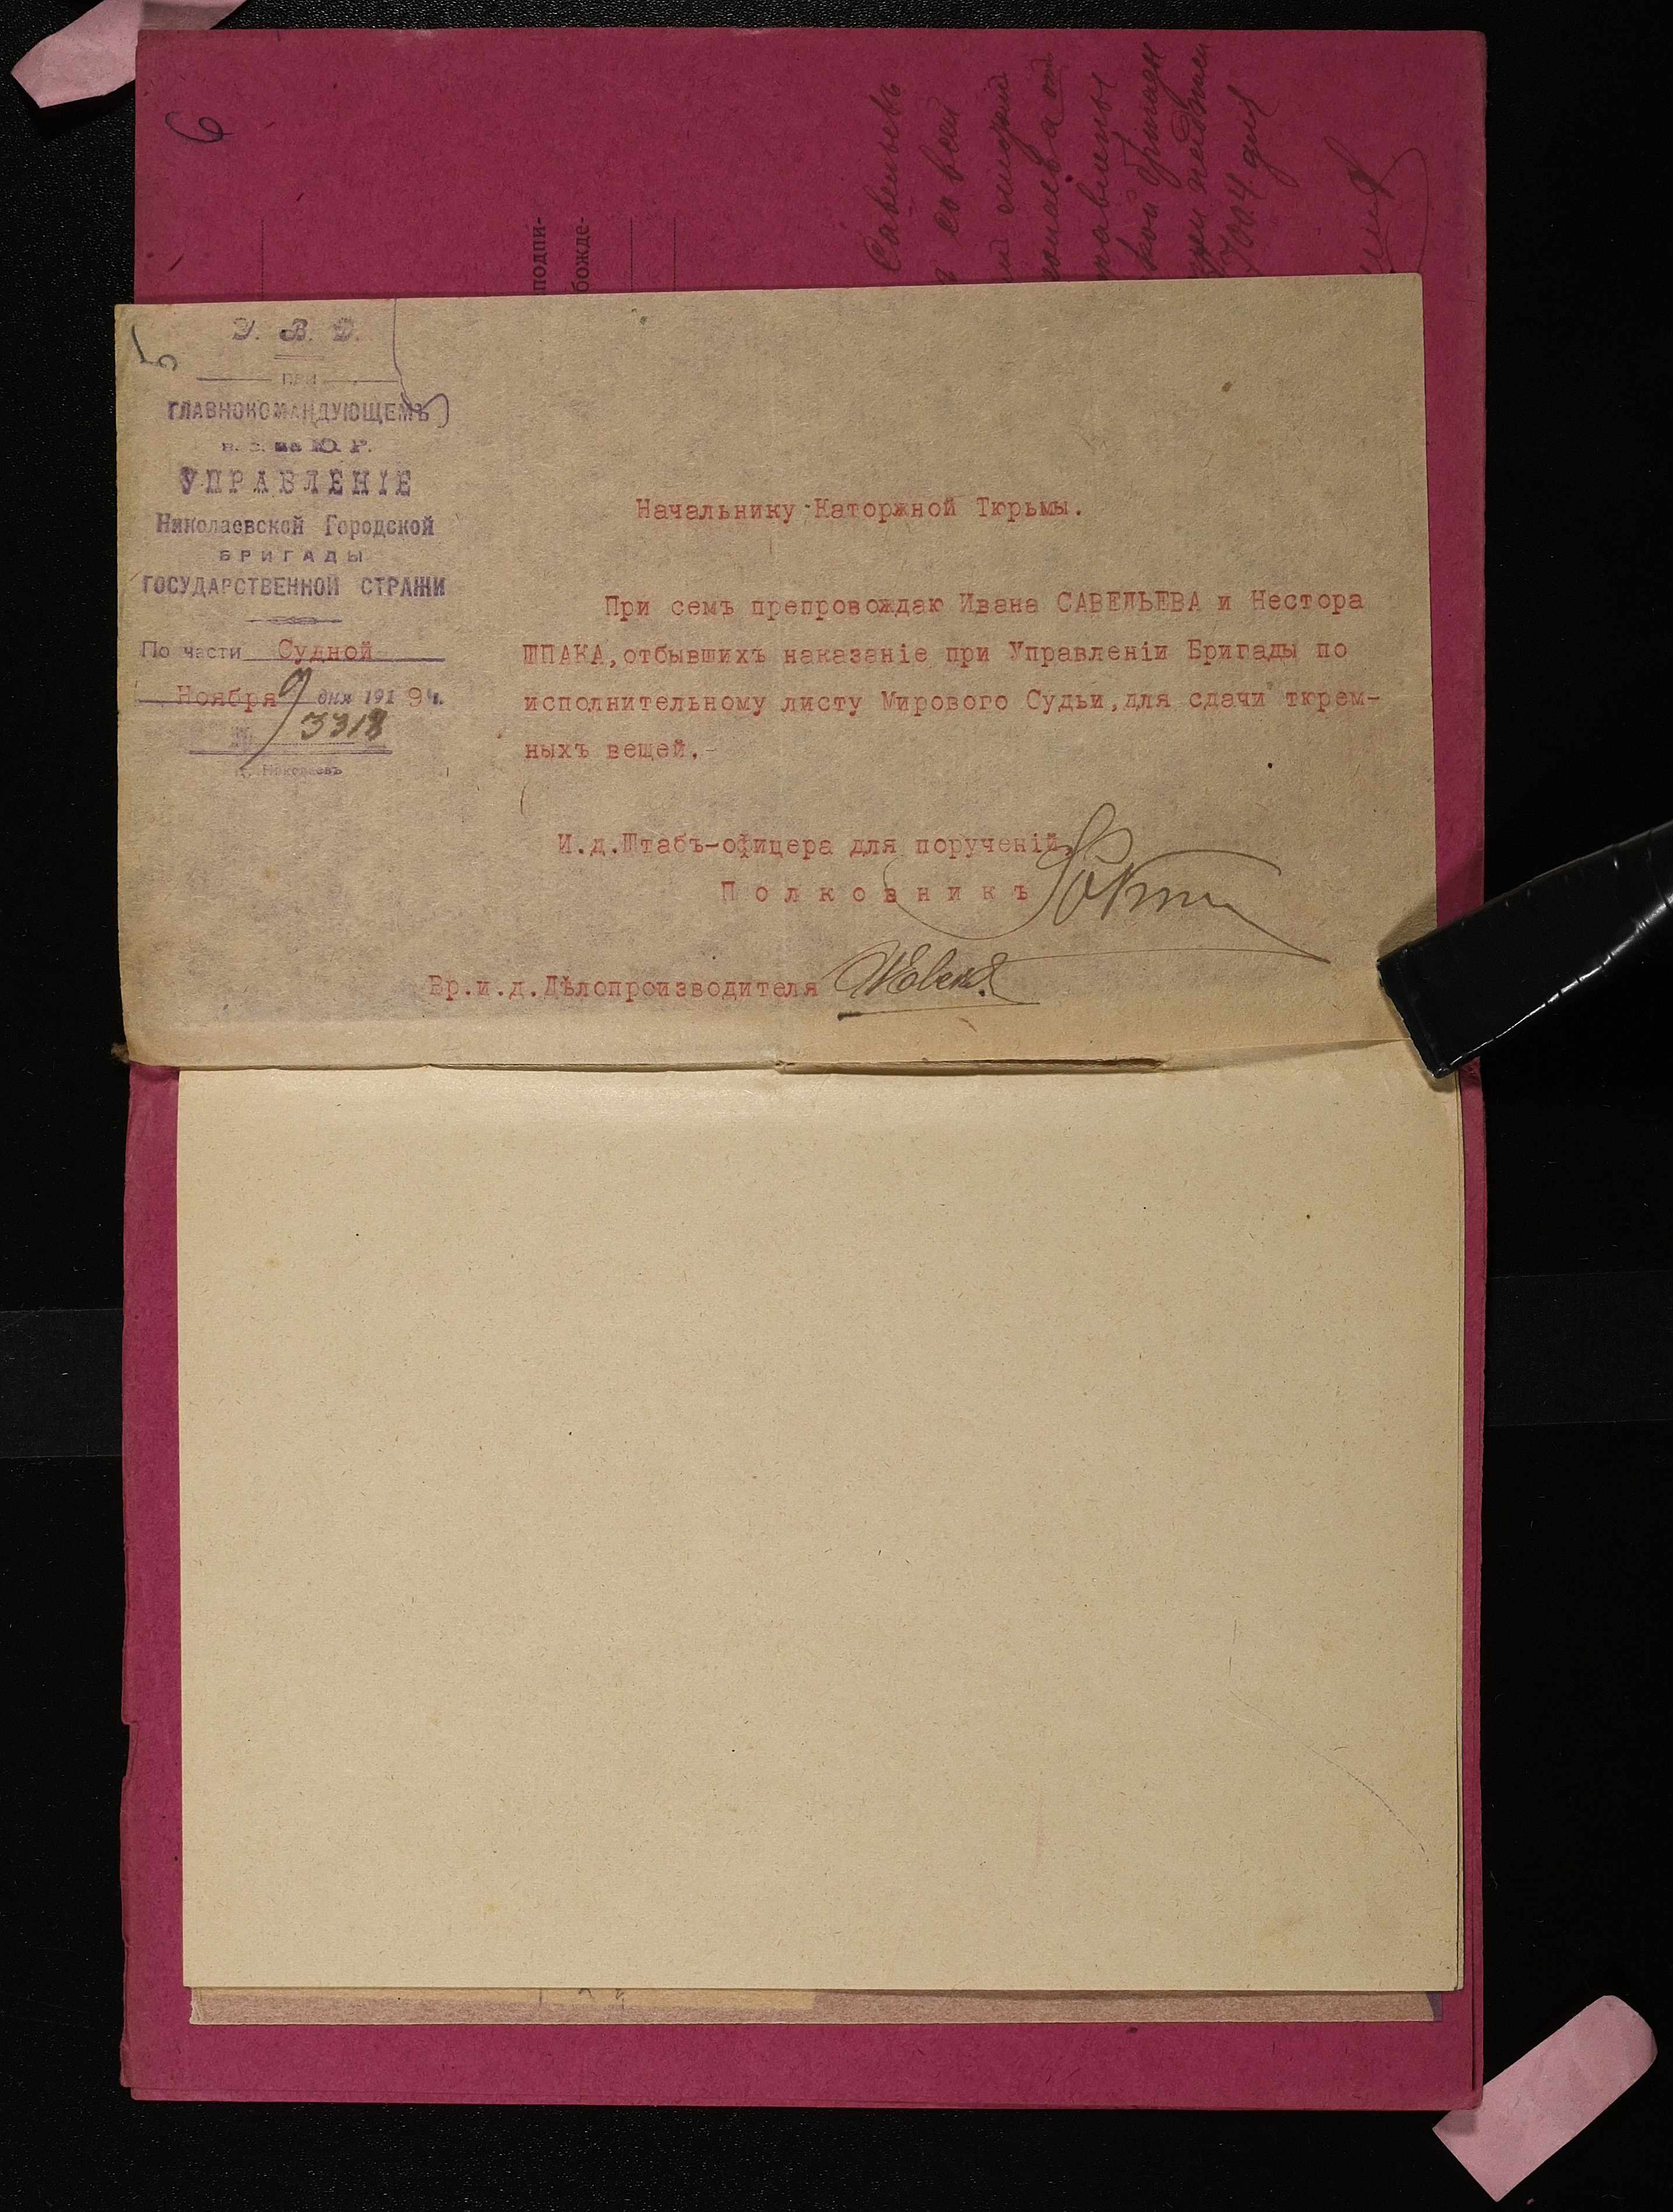 6
подпи-
божде-
Савельевъ
со всей
5
У. В. Д.
ПРИ
ГЛАВНОКОМАНДУЮЩЕМЪ
в. с. на Ю. Р.
УПРАВЛЕНІЕ
Николаевской Городской
БРИГАДЫ
ГОСУДАРСТВЕННОЙ СТРАЖИ
По части Судной
Ноября 9 дня 1919 г.
№ 3318
г. Николаевъ
Начальнику Каторжной Тюрьмы.
При семъ препровождаю Ивана САВЕЛЬЕВА и Нестора
ШПАКА, отбывшихъ наказаніе при Управленіи Бригады по
исполнительному листу Мирового Судьи, для сдачи тюрем-
ныхъ вещей.-
И.д.Штабъ-офицера для порученій,
Полковникъ
Вр.и.д.Дѣлопроизводителя